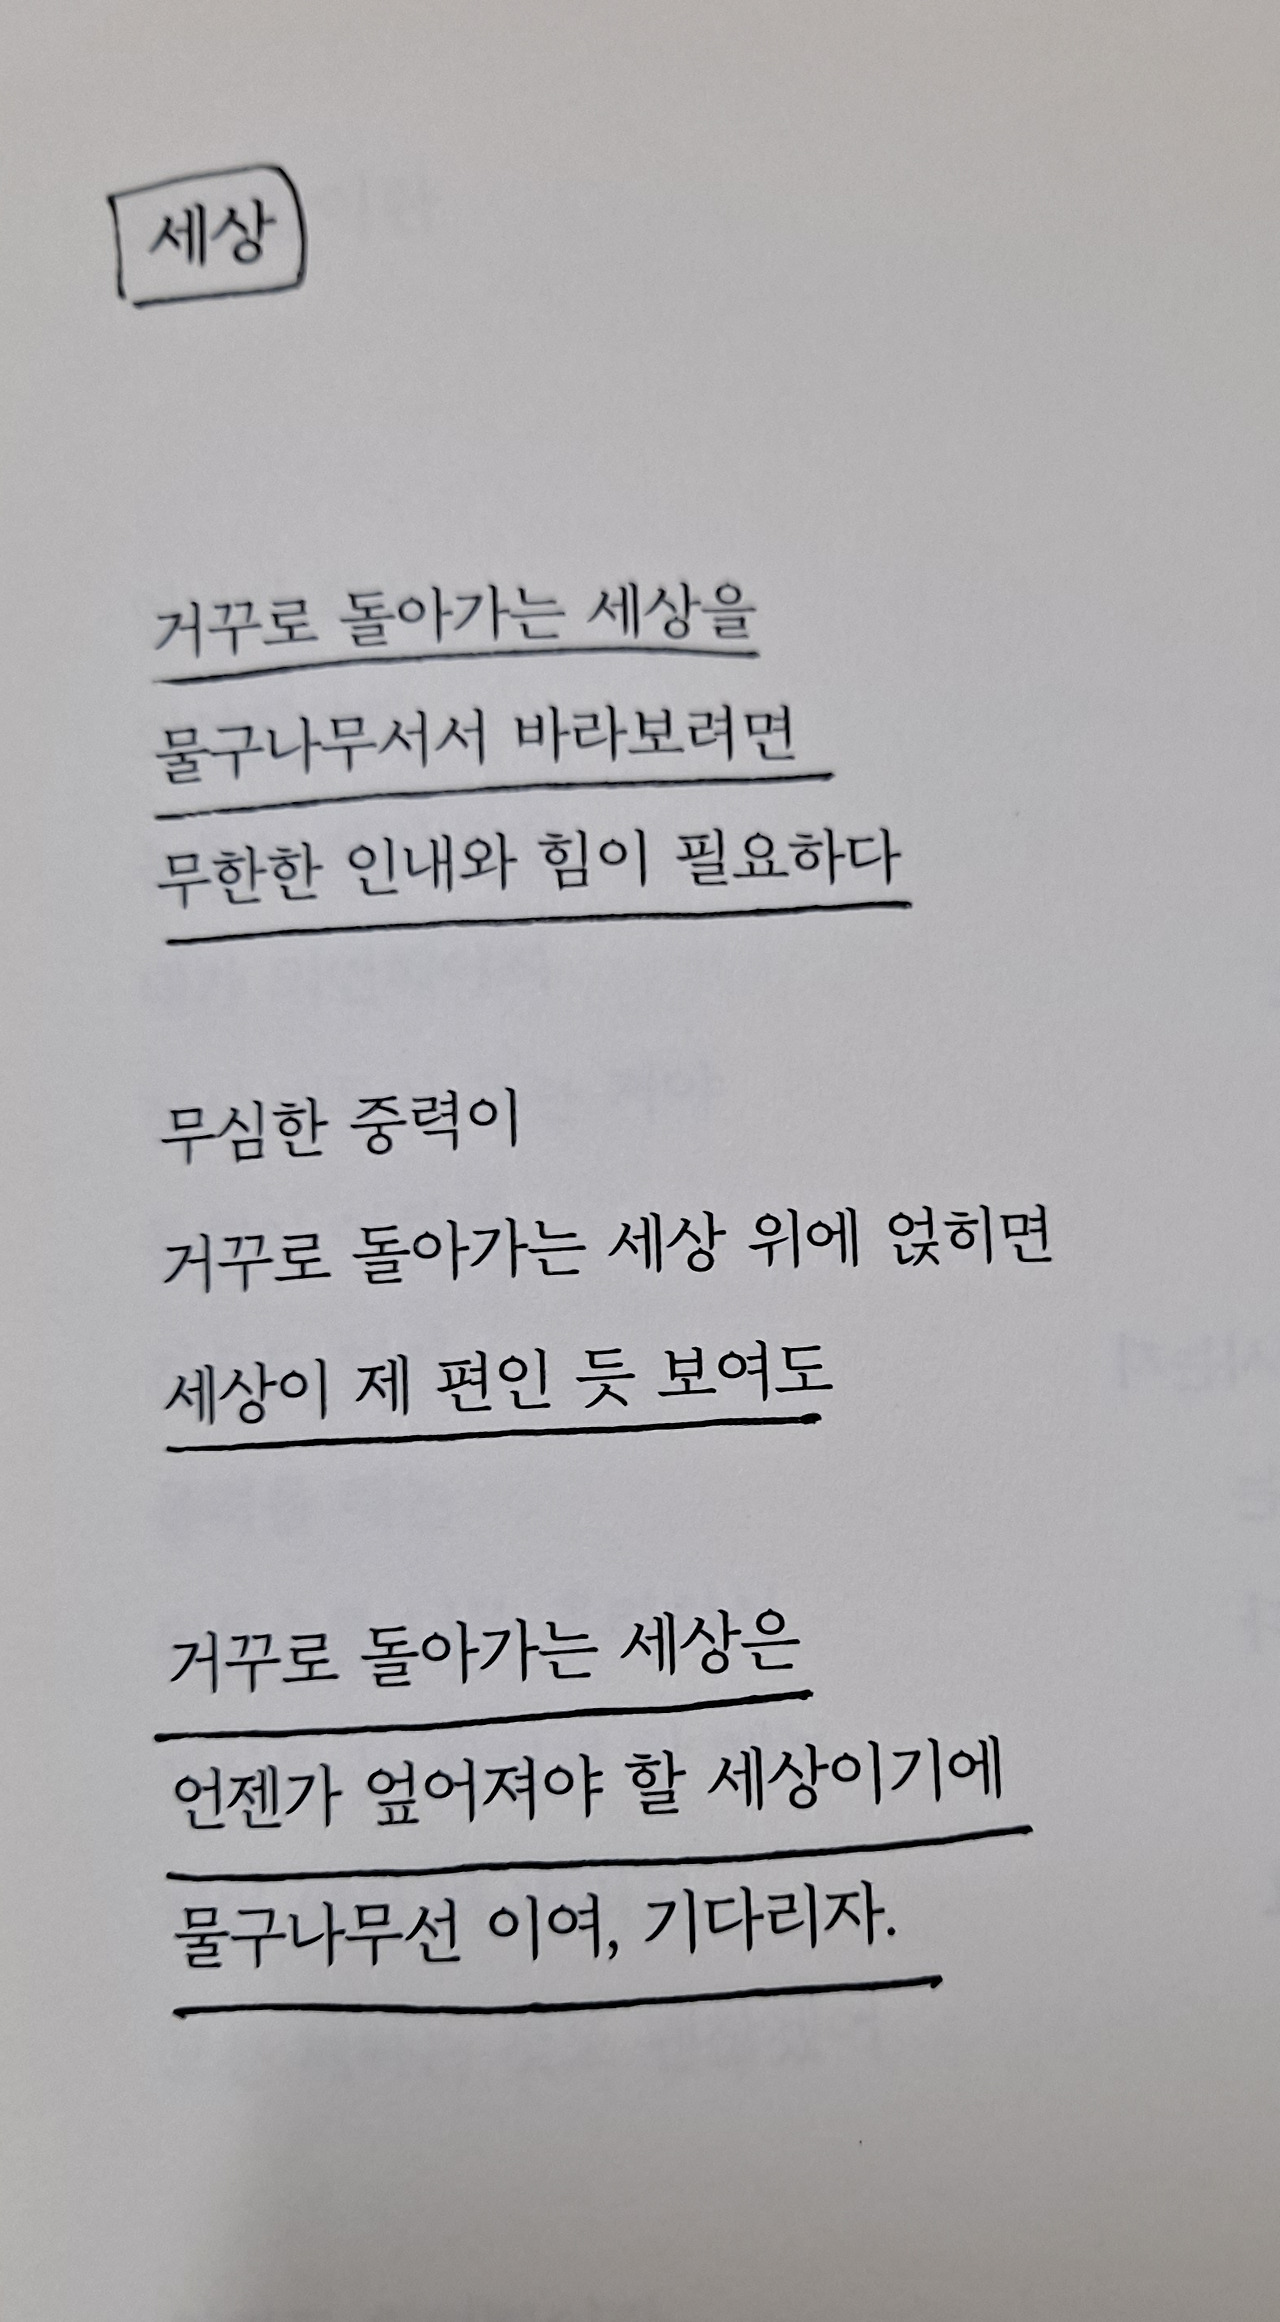 세상
거꾸로 돌아가는 세상을
물구나무서서 바라보려면
무한한 인내와 힘이 필요하다
무심한 중력이
거꾸로 돌아가는 세상 위에 얹히면
세상이 제 편인 듯 보여도
거꾸로 돌아가는 세상은
언젠가 엎어져야 할 세상이기에
물구나무선 이여, 기다리자.